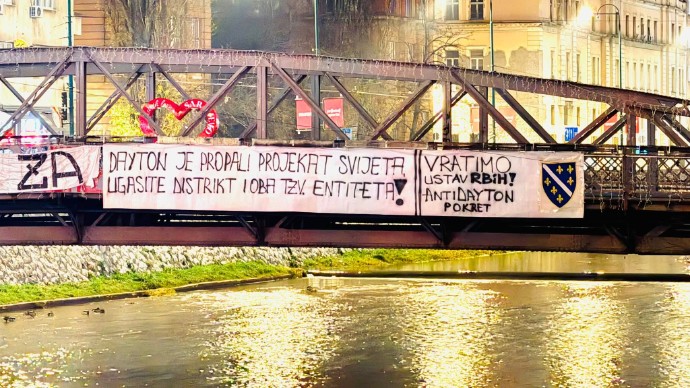 ZA
DAYTON JE PROPALI PROJEKAT SVIJETA,
UGASITE DISTRIKT I OBA TZV. ENTITETA!
VRATIMO
USTAV RBiH!
ANTIDAYTON
POKRET